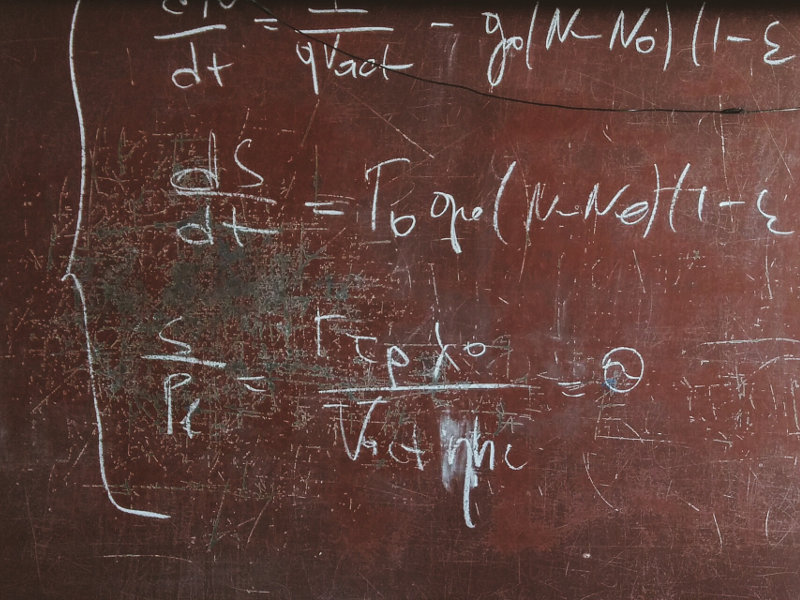 dN/dt = I/qVact - g0(N-N0)(1-ε
dS/dt = Γ0 g0(N-N0)(1-ε
S/Pf = Γ τp λ0 / Vact ηhc =